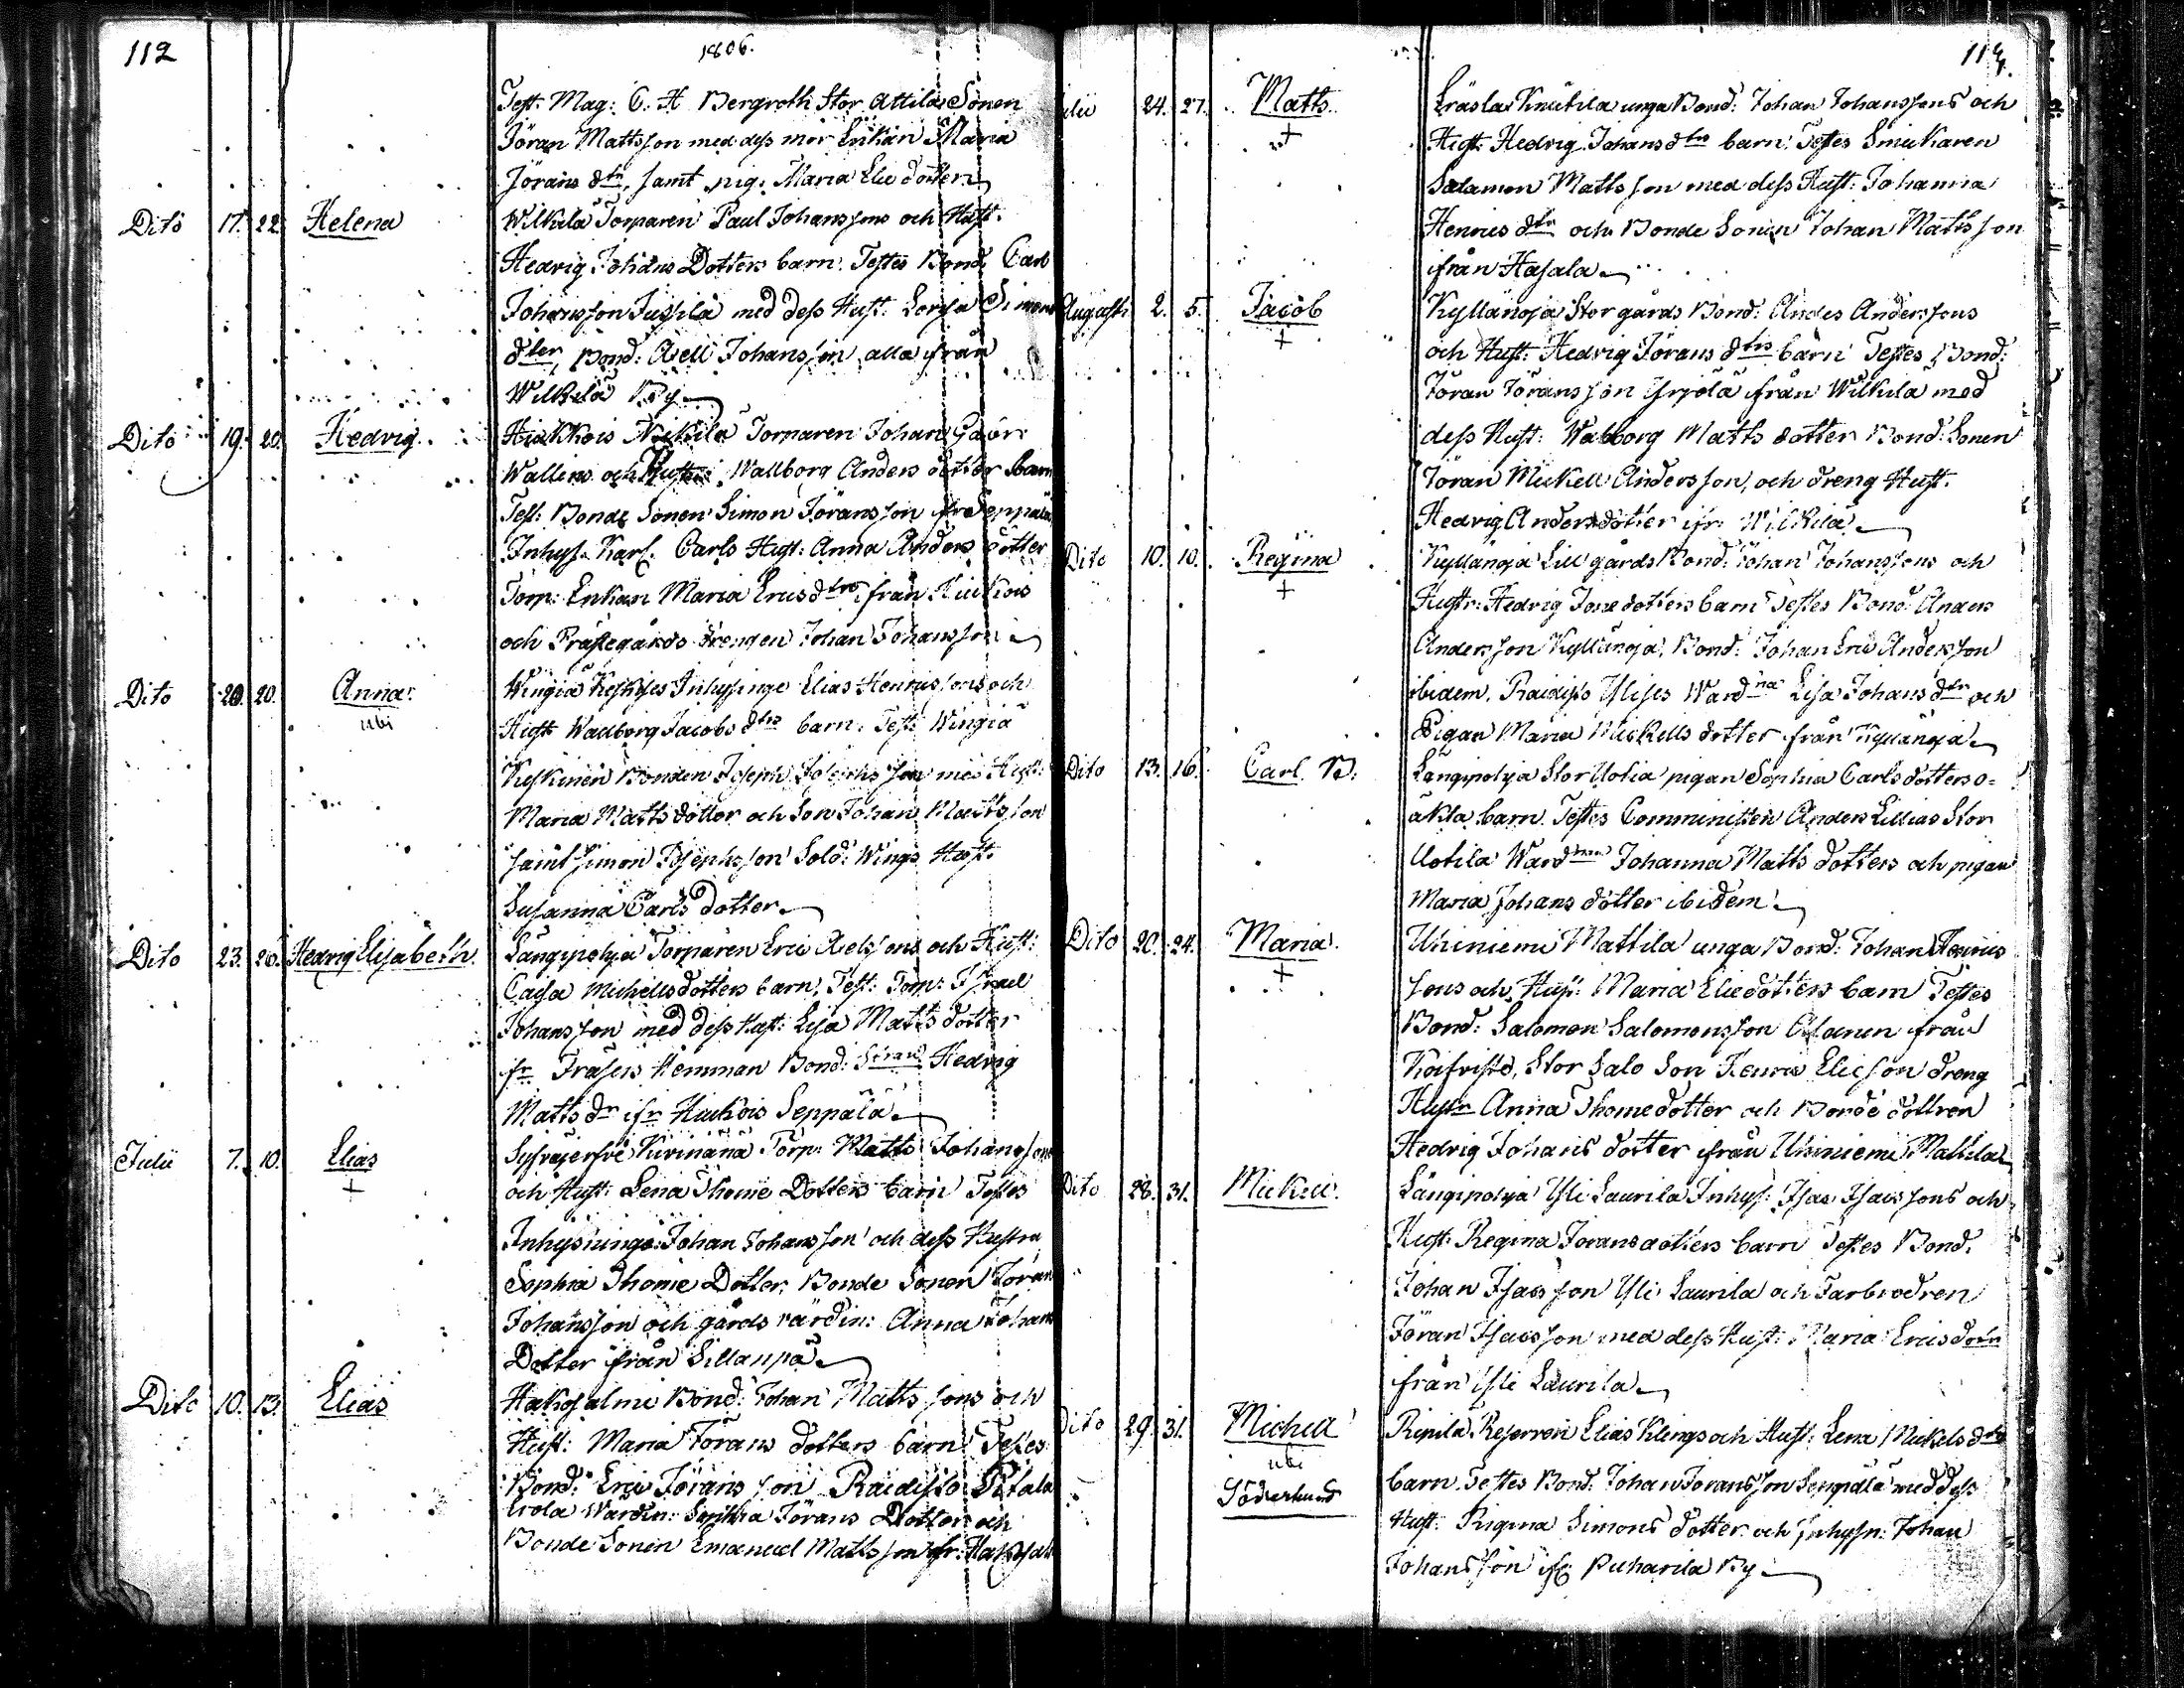 112
1806.
Test. Mag: C: H Bergroth Stor Attila Sonen
Jöran Mattsson med dess mor Enkan Maria
Jörans dtr, samt pig: Maria Elie dotter
Dito 17. 22. Helena Wilkila Torparen Paul Johanssons och Hust.
Hedvig Johans Dotters barn. Testes Bond. Carl
Johansson Jussila med dess Hust: Lovisa Simons
dter, Bond: Axell Johansson alla från
Wilkila By
Dito 19. 20. Hedvig Torparen Johan
Wallins och Hustr: Wallborg Anders dotter barn
Test: Bonde Sonen Simon Jöransson Seppälä
Inhys. Karl. Carls Hust: Anna Anders dotter
Torp: Enkan Maria Ericsdtr från
och Prästegårds drengen Johan Johansson
Dito 20. 20. Anna ubi Wingiä Keskises Inhysinge Elias Henricssons och
Hust Wallborg Jacobs dtrs barn. Test: Wingiä
Keskinen Bonden Joseph Josephsson med Hust:
Maria Matts dotter och Son Johan Mattsson
samt Simon Josephsson Sold: Wings Hust.
Susanna Carls dotter
Dito 23. 26. Hedvig Elisabeth. Längipohja Torparen Eric Axelssons och Hust:
Caisa Michells dotters barn. Test: Torp: Israel
Johansson med dess Hust: Lisa Matts dotter
fr Hemman Bond: Hedvig
Matts dr ifr Seppälä
Julii 7. 10. Elias + Torp: Matts Johanssons
och Hust: Lena Thome Dotters barn Testes
Inhysninge: Johan Johansson och dess Hustru
Sophia Thome Dotter, Bonde Sonen Jöran
Johansson och gårds värdin: Anna Johans
Dotter från Sillanpä
Dito 10. 13. Elias Hakosalmi Bond: Johan Matts sons och
Hust: Maria Jörans dotters barn Testes
Bond: Eric Jörans son Raidisto
Wärdin: Jörans Dotter och
Bonde Sonen Emanuel Mattsson fr:
114.
Julii 24. 27. Matts + Knutila unga Bond: Johan Johanssons och
Hust: Hedvig Johans dtrs barn. Testes
Salomon Mattsson med dess Hust: Johanna
Henrics dtr och Bonde Sonen Johan Mattsson
ifrån Hasala
Augusti 2. 5. Jacob + Kyllänoja Storgårds Bond: Andes Anderssons
och Hust: Hedvig Jörans dtrs barn Testes Bond:
Jöran Jöransson Yrjölä från Wilkila med
dess Hust: Walborg Matts dotter Bond: Sonen
Jöran Mickell Andersson, och dreng Hust.
Hedvig Andersdotter ifr: Wilkila
Dito 10. 10. Regina + Kyllänoja Lill gårds Bond: Johan Johanssons och
Hustr: Hedvig dotters barn Testes Bond: Anders
Andersson Kyllänoja, Bond: Johan Eric Andersson
ibidem. Lisa Johans dtr och
Pigan Maria Mickells dotter från Kyllänoja
Dito 13. 16. Carl. B. Längipohja Stor Uotila pigan Sophia Carls dotters o=
äkta barn. Testes Comministen Anders Lillias Stor
Uotila Johanna Matts dotters och pigan
Maria Johans dotter ibidem
Dito 20. 24. Maria. + Uhiniemi Mattila unga Bond: Johan Henrics
sons och Hust: Maria Elie dotters barn Testes
Bond: Salomon Salomonsson från
Stor Salo Son Henric Elieson dreng
Hustr Anna Thome dotter och Bonde dottren
Hedvig Johans dotter ifrån Uhiniemi Mattila
Dito 28. 31. Mickell. Längipohja Yli Laurila Inhys: Isac Isacssons och
Hust: Regina Jörans dotters barn Testes Bond.
Johan Isacsson Yli Laurila och Farbrodren
Jöran Isacsson med dess Hust: Maria Ericsdotr
från Yli Laurila
Dito 29. 31. Michell ubi Söderlund Ripila Reserven Elias Klings och Hust: Lena Mickels dtrs
barn. Testes Bond: Johan Jöransson Seppälä med dess
Hust: Regina Simons dotter och Inhysn: Johan
Johansson ifr Puharila By